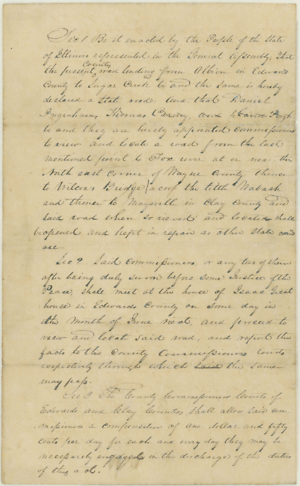 Sec 1 Be it enacted by the People of the State
of Illinois represented in the General Assembly, That
County
the present road leading from Albion in Edwards
County to Sugar Creek to and the same is hereby
declared a State road And that Daniel
Thomas and
to and they are hereby appointed Commissioners
to view and locate a road from the last
mentioned point to at or near the
North east corner of Wayne County thence
to Bridge across the little Wabash
and thence to Maysville in Clay County and
said road when so viewed and located shall
be opened and kept in repair as other State roads
are.
Sec 2 Said Commissioners or any two of them
after being duly sworn before some Justice of the
Peace, shall meet at the house of Isaac
house in Edwards County on some day in
the Month of June next, and proceed to
view and locate said road, and report the
facts to the County Commissioners Courts
respectively through which said the same
may pass.
Sec 3 The County Commissioners Courts of
Edwards and Clay Counties shall allow said com-
missioners a compensation of one dollar and fifty
cents per day for each and every day they may be
necessarily engaged in the discharge of the duties
of this act.